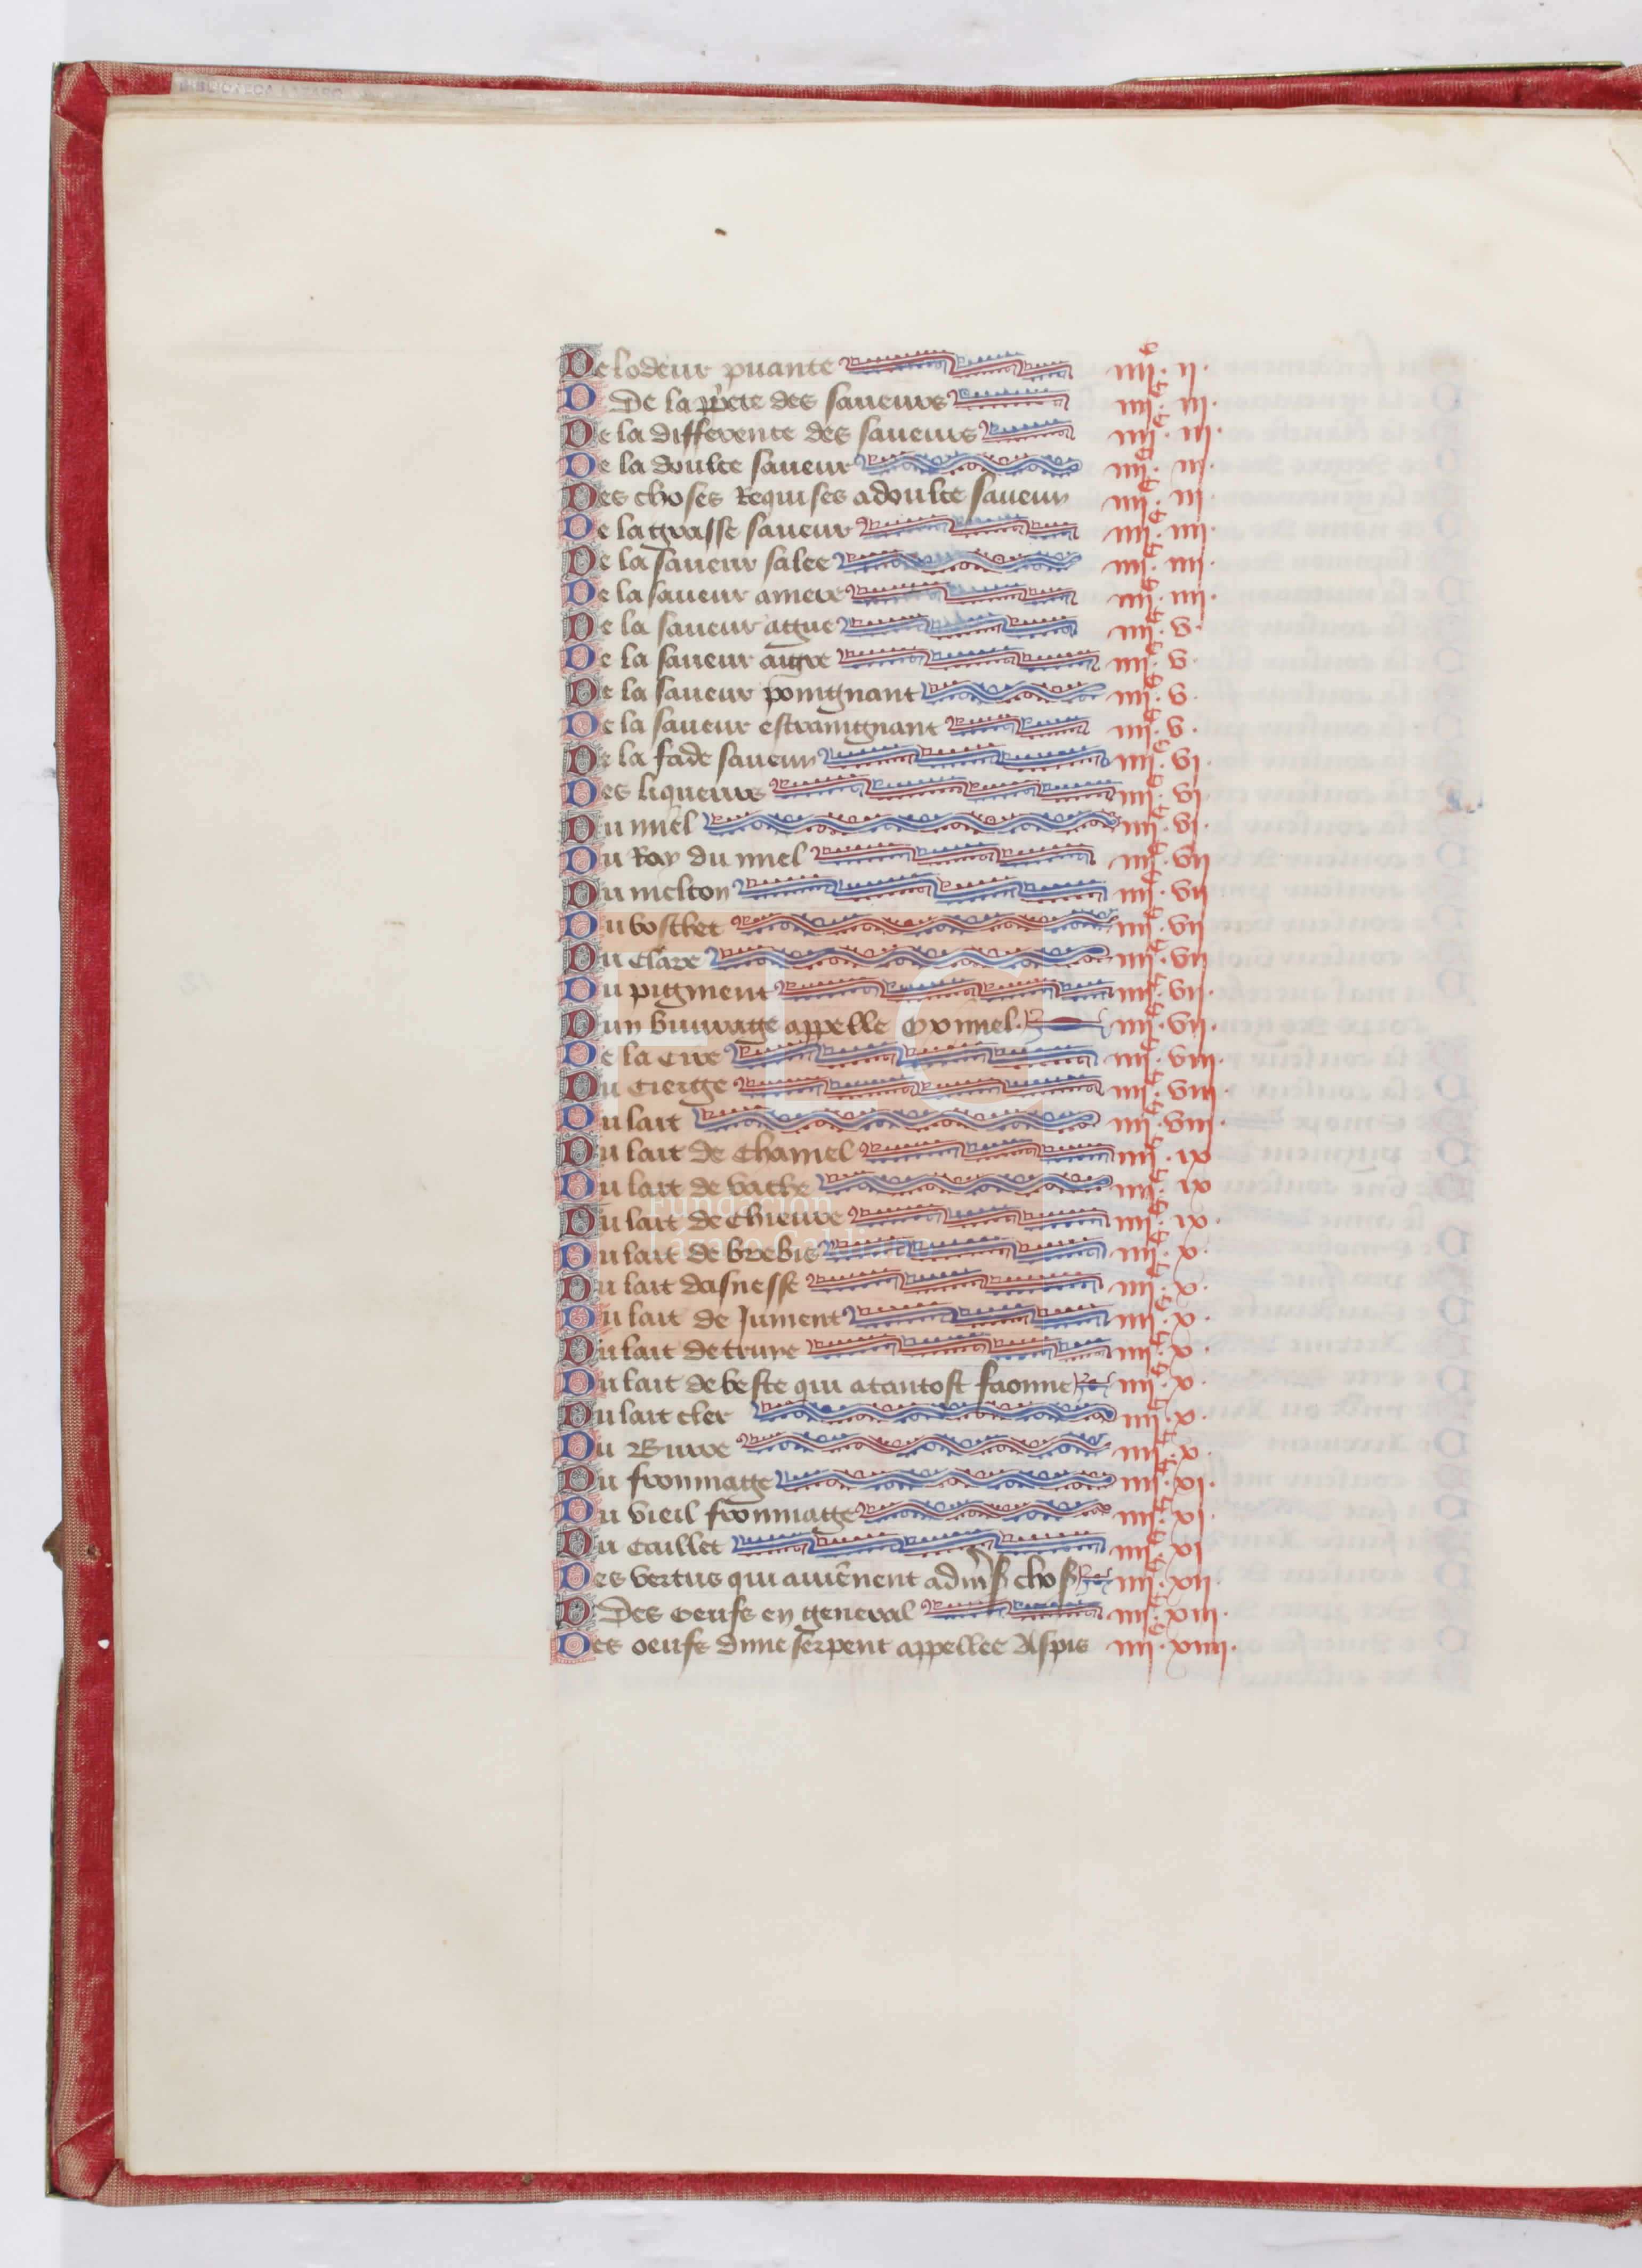 BIBLIOTECA LAZARO
De lodeur puante iiii.c ii.
D De la pprete des saueurs iiii.c iii.
De la difference des saueurs iiii.c iii.
De la doulce saueur iiii.c iii.
Des choses Requises a doulce saueur iiii.c iii
De la grasse saueur iiii.c iiii.
De la saueur salee iiii.c iiii.
De la saueur amere iiii.c iiii.
De la saueur ague iiii.c v.
De la saueur aigre iiii.c v.
De la saueur poingnant iiii.c v.
De la saueur estraingnant iiii.c v.
De la fade saueur iiii.c vi.
Des liqueurs iiii.c vi
Du miel iiii.c vi.
Du Ray du miel iiii.c vii
Du melcon iiii.c vii
Du boschet iiii.c vii
Du Clare iiii.c vii
Du pigment iiii.c vii.
Dun buurage appelle Oximel. iiii.c vii.
De la Cire iiii.c viii.
Du Cierge iiii.c viii
Du lait iiii.c viii.
Du lait de Chamel iiii.c ix
Du lait de vache iiii.c ix
Du lait de Chieure iiii.c ix.
Du lait de brebis iiii.c x.
Du lait dasnesse iiii.c x.
Du lait de Jument iiii.c x.
Du lait de truye iiii.c x.
Du lait de beste qui a tantost faonne iiii.c x.
Du lait cler iiii.c x.
Du Burre iiii.c x.
Du frommage iiii.c xi.
Du vieil frommage iiii.c xi.
Du Caillet iiii.c xi
Des vertus qui auienent a choses iiii.c xii.
D Des oeufs en general iiii.c xiii.
Des oeufs dune serpent appellee Aspis iiii.c xiiii.
FLG
Fundación
Lázaro Galdiano